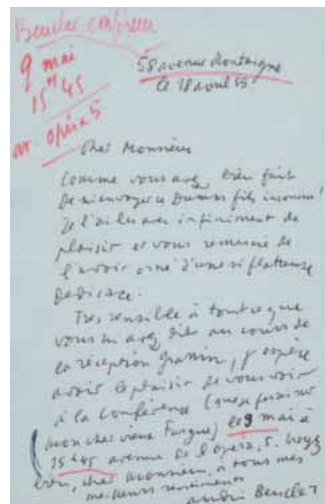 Beucler conférence
9 mai
15h45
av. opéra 5
58 avenue Montaigne
le 28 avril 55
Cher Monsieur
Comme vous avez bien fait
de m'envoyer ce Dumas fils inconnu!
Je l'ai lu avec infiniment de
plaisir et vous remercie de
l'avoir orné d'une si flatteuse
dédicace.
Très sensible à tout ce que
vous m'avez dit au cours de
la réception, j'espère
avoir le plaisir de vous voir
à la Conférence (que je fais sur
mon cher vieux Fargue) le 9 mai à
15h45 avenue de l'opéra, 5. Croyez
bien, cher monsieur, à tous mes
meilleurs sentiments
André Beucler